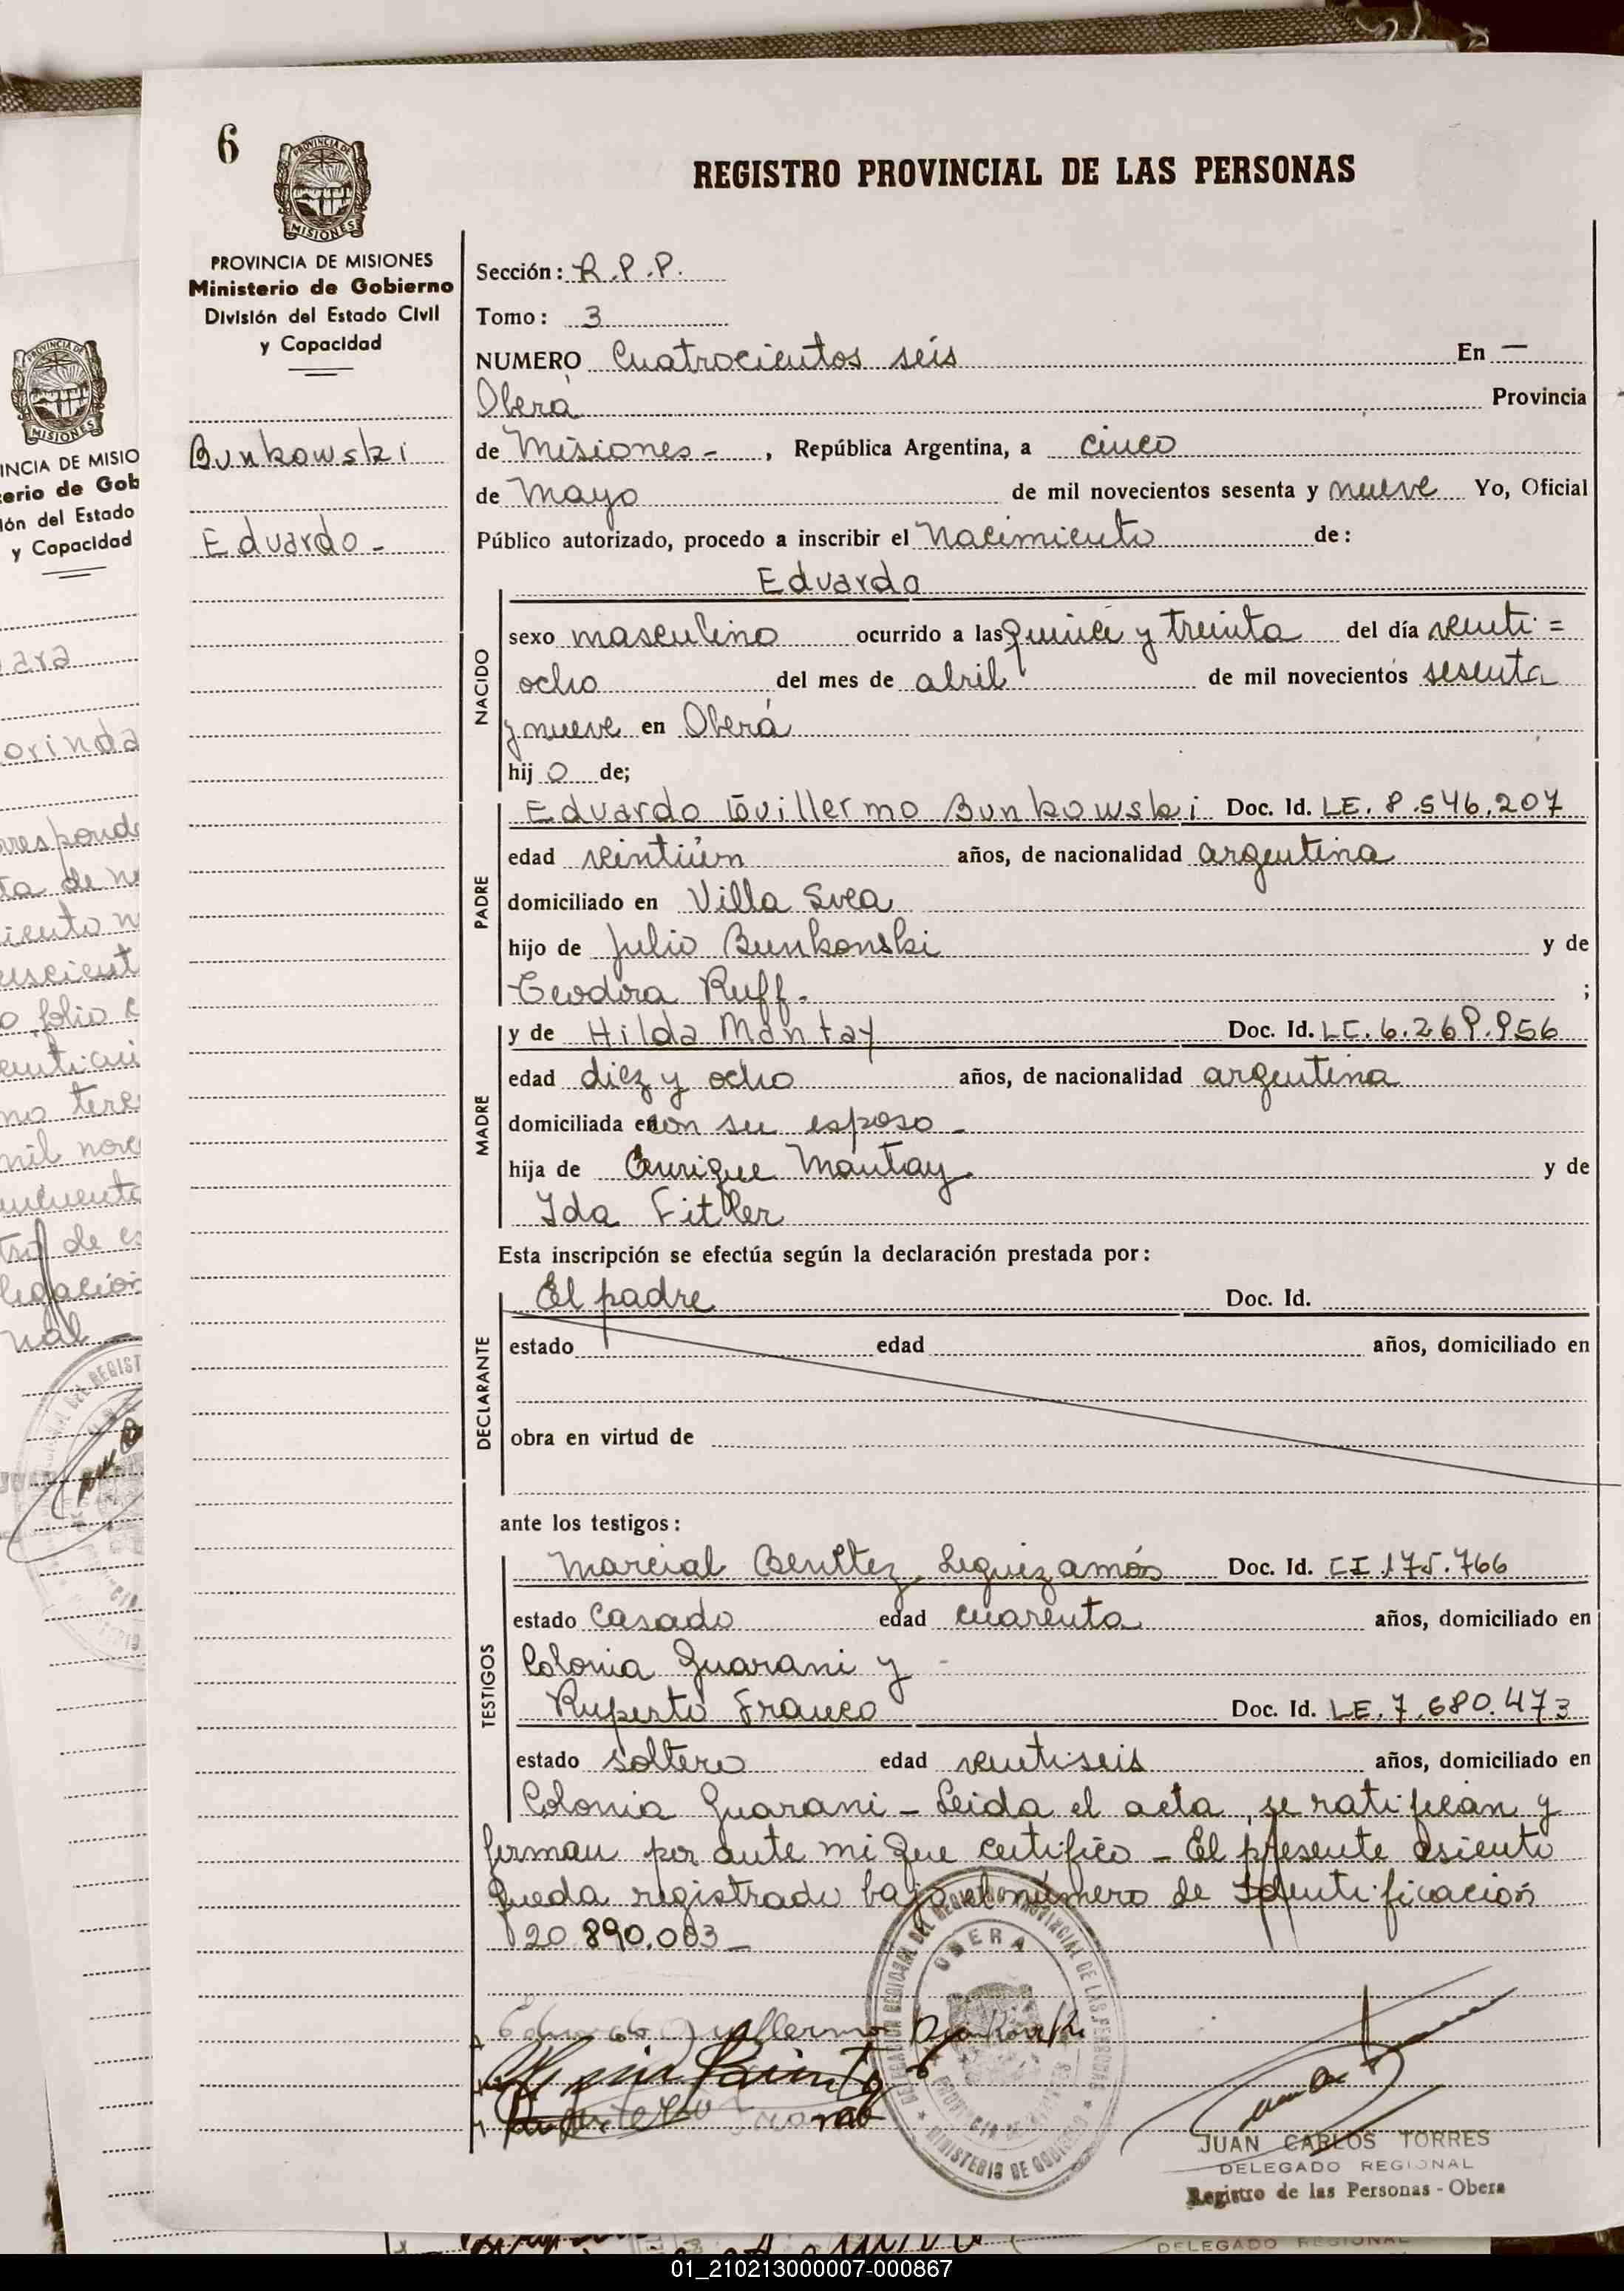 6
REGISTRO PROVINCIAL DE LAS PERSONAS
PROVINCIA DE
MISIONES
PROVINCIA DE MISIONES
Ministerio de Gobierno
División del Estado Civil
y Capacidad
Bunkowski
Eduardo -
Sección: R.P.P.
Tomo: 3
NUMERO Cuatrocientos seis En —
Oberá Provincia
de Misiones - , República Argentina, a cinco
de Mayo de mil novecientos sesenta y nueve Yo, Oficial
Público autorizado, procedo a inscribir el Nacimiento de:
Eduardo
NACIDO
sexo masculino ocurrido a las quince y treinta del día venti =
ocho del mes de abril de mil novecientos sesenta
y nueve en Oberá
hij o de;
PADRE
Eduardo Guillermo Bunkowski Doc. Id. LE. 8.546.207
edad veintiún años, de nacionalidad argentina
domiciliado en Villa Svea
hijo de Julio Bunkonski y de
Teodora Ruff. ;
MADRE
y de Hilda Mantay Doc. Id. LC. 6.269.956
edad diez y ocho años, de nacionalidad argentina
domiciliada en con su esposo -
hija de Enrique Mantay y de
Ida Fitller
Esta inscripción se efectúa según la declaración prestada por:
DECLARANTE
El padre Doc. Id.
estado edad años, domiciliado en
obra en virtud de
ante los testigos:
TESTIGOS
Marcial Benítez Leguizamós Doc. Id. CI 175.766
estado Casado edad cuarenta años, domiciliado en
Colonia Guarani y -
Ruperto Franco Doc. Id. LE. 7.680.473
estado soltero edad ventiseis años, domiciliado en
Colonia Guarani - Leida el acta, se ratifican y
firman por ante mi que certifico - El presente asiento
queda registrado bajo el número de Identificación
20.890.003 -
Eduardo Guillermo
OBERA
MINISTERIO DE GOBIERNO
JUAN CARLOS TORRES
DELEGADO REGIONAL
Registro de las Personas - Obera
DELEGADO REGIONAL
01_210213000007-000867